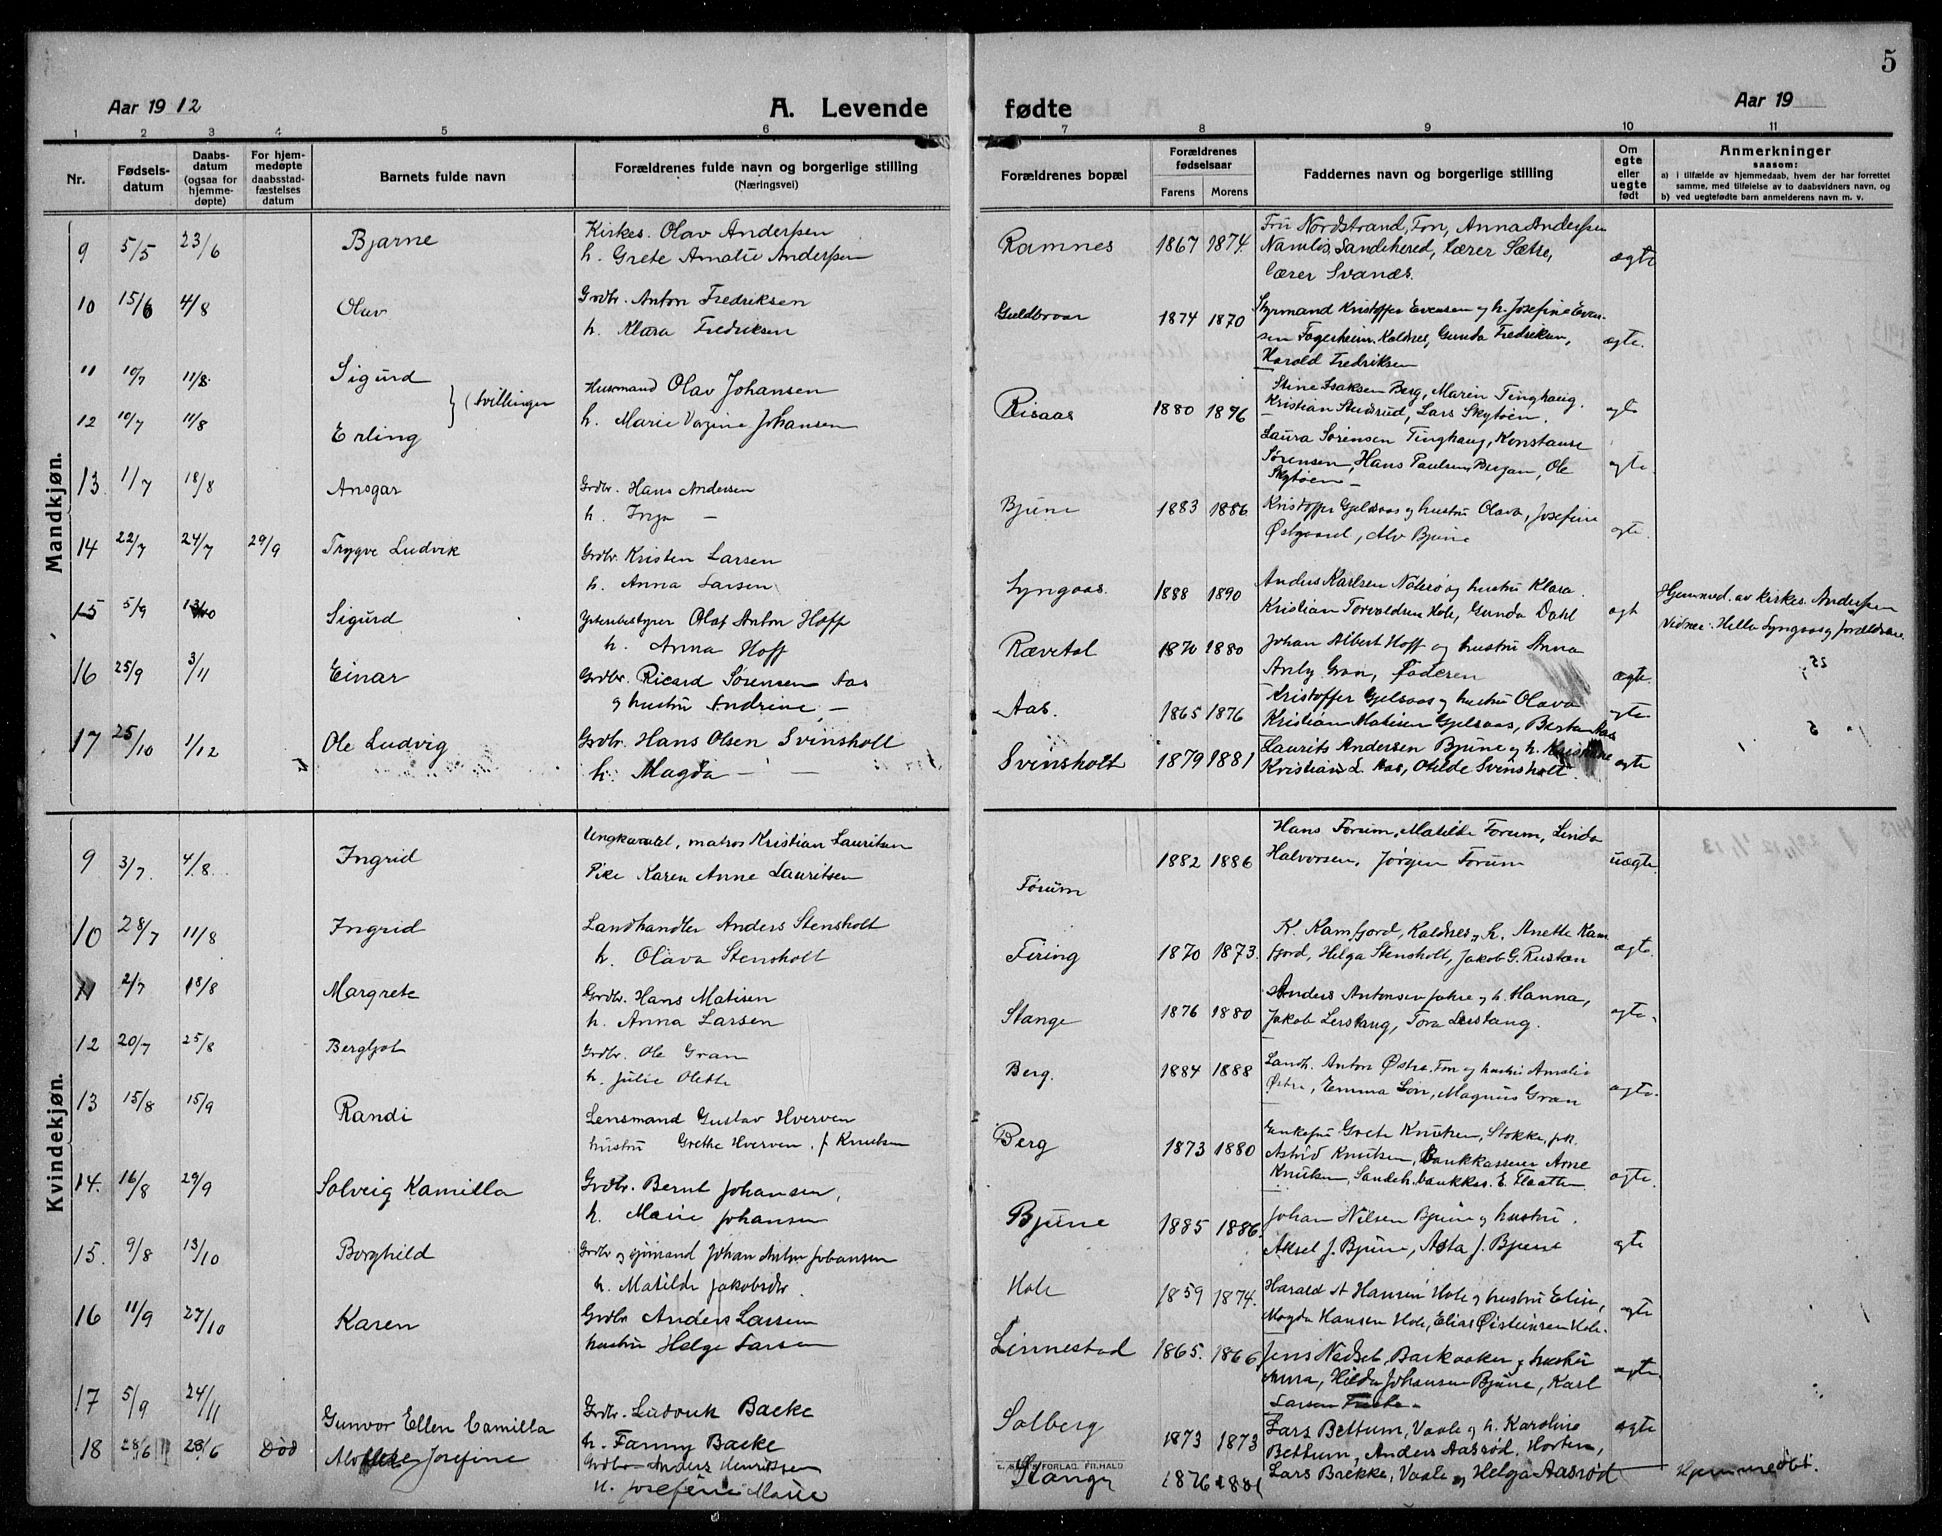 5
Aar 1912
A. Levende
fødte
Aar 19
1 2 3 4 5 6 7 8 9 10 11
Nr.
Fødsels-
datum
Daabs-
datum
(ogsaa for
hjemme-
døpte)
For hjem-
medøpte
daabsstad-
fæstelses
datum
Barnets fulde navn
Forældrenes fulde navn og borgerlige stilling
(Næringsvei)
Forældrenes bopæl
Forældrenes
fødselsaar
Farens Morens
Faddernes navn og borgerlige stilling
Om
egte
eller
uegte
født
Anmerkninger
saasom:
a) i tilfælde av hjemmedaab, hvem der har forrettet
samme, med tilføielse av to daabsvidners navn, og
b) ved uegtefødte barn anmelderens navn m. v.
Mandkjøn.
9 5/5 23/6 Bjarne
Kirkes. Olav Anderssen
h. Grete Amalie Anderssen
Ramnes 1867 1874
Fru Nordstrand, Ton, Anna Anderssen
Sandehered, Lærer Sætre,
lærer Svanæs.
ægte
10 15/6 4/8 Olav
Grdbr. Anton Fredriksen
h. Klara Fredriksen
Guldbraar 1874 1870
Styrmand Kristoffer Evensen og h. Josefine Even-
sen Fagerheim, Kaldnes, Gunda Fredriksen,
Harald Fredriksen
ægte.
11 10/7 11/8 Sigurd
(tvillinger
12 10/7 11/8 Erling
Husmand Olav Johansen
h. Marie Virgine Johansen
Risaas 1880 1876
Stine Isaksen Berg, Marin Tinghaug.
Kristian Studsrud, Lars Skytøen
ægte
Laura Sørensen Tinghaug, Konstanse
Sørensen, Hans Paulsen Bergan, Ole
Skytøen –
ægte.
13 1/7 18/8 Ansgar
Grdbr. Hans Andersen
h. Inga –
Bjune 1883 1886
Kristoffer Gjelsaas og hustru Olava, Josefine
Østgaard, Alv Bjune
ægte.
14 22/7 24/7 29/9 Trygve Ludvik
Grdbr. Kristen Larsen
h. Anna Larsen
Lyngaas 1888 1890
Anders Karlsen Nøterø og hustru Klara.
Kristian Torvaldsen Hole, Gunda Dahl
egt
Hjemmed. av kirkes. Anderssen
Vidner: Helle Lyngaas og forældrene
15 5/9 13/10 Sigurd
Ysteribestyrer Olaf Anton Hoff
h. Anna Hoff
Rævetal 1870 1880
Johan Albert Hoff og hustru Anna
Gran, Faderen
ægte.
16 25/9 3/11 Einar
Grdbr. Ricard Sørensen Aas
og hustru Andrine –
Aas. 1865 1876
Kristoffer Gjelsaas og hustru Olava
Kristian Matisen Gjelsaas, Aas
ægte
17 25/10 1/12 Ole Ludvig
Grdbr. Hans Olsen Svinsholt
h. Magda – –
Svensholt 1879 1881
Laurits Andersen Bjune og h.
Kristian L. Aas, Otilde Svinsholt.
ægte
Kvindekjøn.
9 3/7. 4/8. Ingrid
Ungkarl, matros Kristian Lauritsen
Pike Karen Anne Lauritsen
Forum 1882 1886
Hans Forum, Matilde Forum, Linda
Halvorsen, Jørgen Forum
uægte.
10 28/7 11/8 Ingrid
Landhandler Anders Stensholt
h. Olava Stensholt
Firing 1870 1873.
K. Kamfjord, Kaldnes, h. Anette Kam
fjord, Helga Stensholt, Jakob G. Rustan
ægte.
11 2/7 18/8 Margrete
Grdbr. Hans Matisen
h. Anna Larsen
Stange 1876 1880
Anders Antonsen Jahre og h. Hanna,
Jakob Leistang, Tora Leistang.
ægte.
12 20/7 25/8 Bergljot
Grdbr. Ole Gran
h. Julie Olette
Berg. 1884 1888
Landh. Anton Østrø, Ton og hustru Amalie
Østrø, Emma Løn, Magnus Gran
ægte.
13 15/8 15/9 Randi
Lensmand Gustav Hverven
hustru Grethe Hverven, f. Knutsen
Berg 1873 1880
Enkefru Grete Knutsen, Stokke, frk.
Astrid Knutsen, Bankkasserer Arne
Knutsen, Sandeh. bankkas. E. Flaatten
ægte.
14. 16/8 29/9 Solveig Kamilla
Grdbr. Bernt Johansen,
h. Marie Johansen
Bjune 1885 1886.
Johan Nilsen Bjune og hustru.
Aksel J. Bjune, Asta J. Bjune
ægte
15. 9/8 13/10 Borghild
Grdbr og sjømand Johan Anton Johansen
h. Matilde Jakobsdtr.
Hole 1859 1874.
Harald A Hansen Hole og hustru Elise,
Magda Hansen Hole, Elias Øisteinsen Hole.
ægte
16 11/9 27/10 Karen
Grdbr Anders Larsen
hustru Helga Larsen
Linnestad 1865. 1866
Jens Nedset, Barkaaker og hustru
Anna, Hilda Johansen Bjune, Karl
Larsen
ægte
17 5/9 24/11 Gunvor Ellen Camilla
Grdbr. Ludvik Bakke
h. Fanny Bakke
Solberg 1873 1873
Lars Bettum, Vaale og h. Karoline
Bettum, Anders Aasrød, Horten,
Lars Brekke, Vaale, og Helga Aasrød
ægte
18 28/6 28/6 Død Josefine
Grdbr Anders Henriksen
h. Josefine Marie
Stange 1876 1881
Hjemmedøbt.
FORLAG. FR.HALD